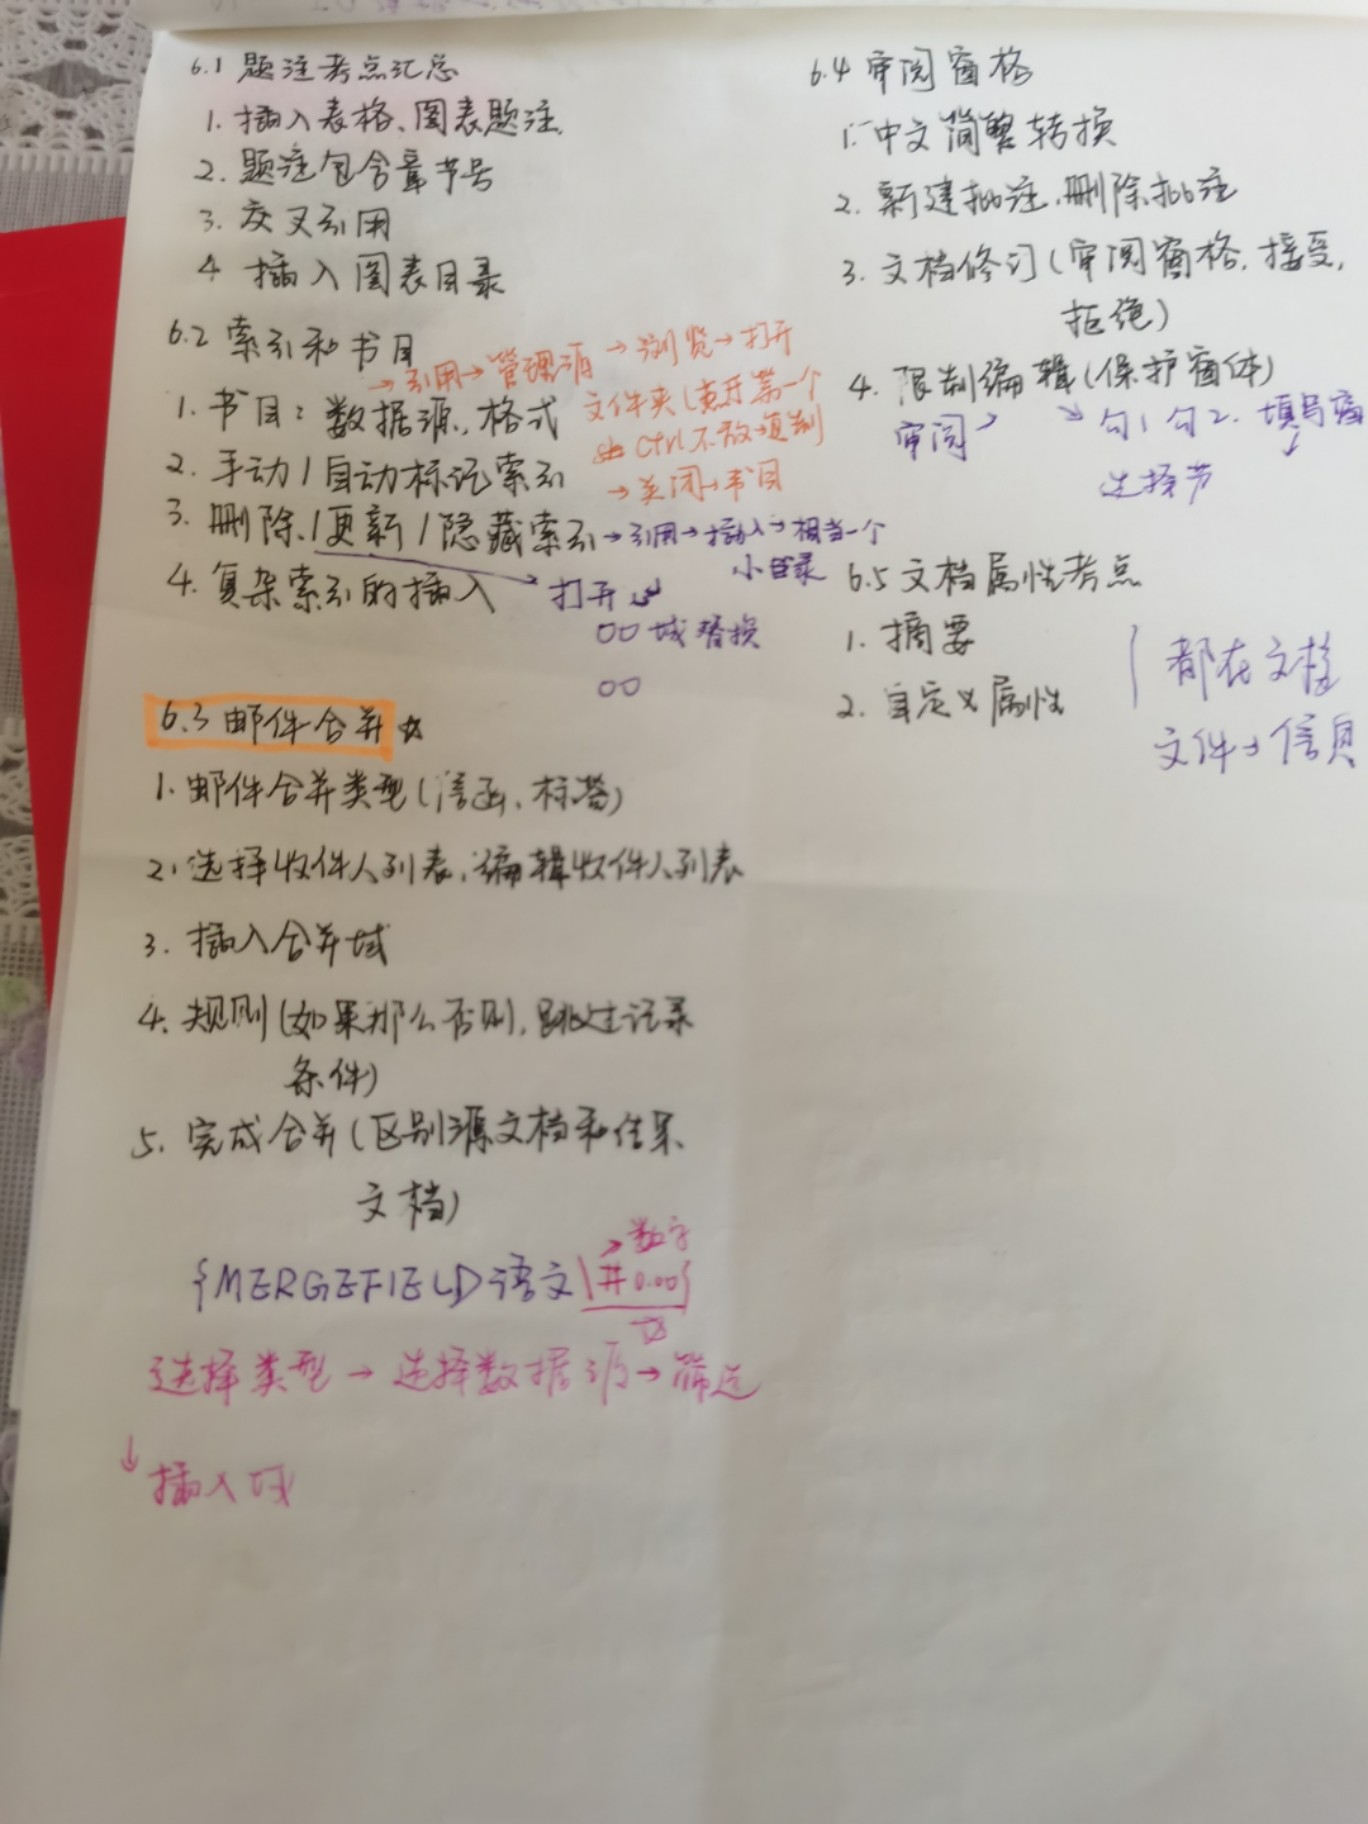 6.1 题注考点汇总
1. 插入表格、图表题注.
2. 题注包含章节号
3. 交叉引用
4 插入图表目录
6.2 索引和书目
→引用→管理源→浏览→打开
1. 书目：数据源，格式
文件夹(点开第一个
Ctrl不放→复制
→关闭→书目
2. 手动/自动标记索引
3. 删除/更新/隐藏索引→引用→插入→相当一个
小目录
4. 复杂索引的插入
打开
○○域替换
○○
6.3 邮件合并☆
1. 邮件合并类型(信函、标签)
2. 选择收件人列表，编辑收件人列表
3. 插入合并域
4. 规则(如果那么否则，跳过记录
条件)
5. 完成合并(区别源文档和结果
文档)
→数字
{MERGEFIELD语文\#0.00}
选择类型→选择数据源→筛选
↓插入域
6.4 审阅窗格
1. 中文简繁转换
2. 新建批注，删除批注
3. 文档修订(审阅窗格，接受，
拒绝)
4. 限制编辑(保护窗体)
审阅
→勾1勾2. 填写窗
↓
选择节
6.5 文档属性考点
1. 摘要
2. 自定义属性
都在文档
文件→信息